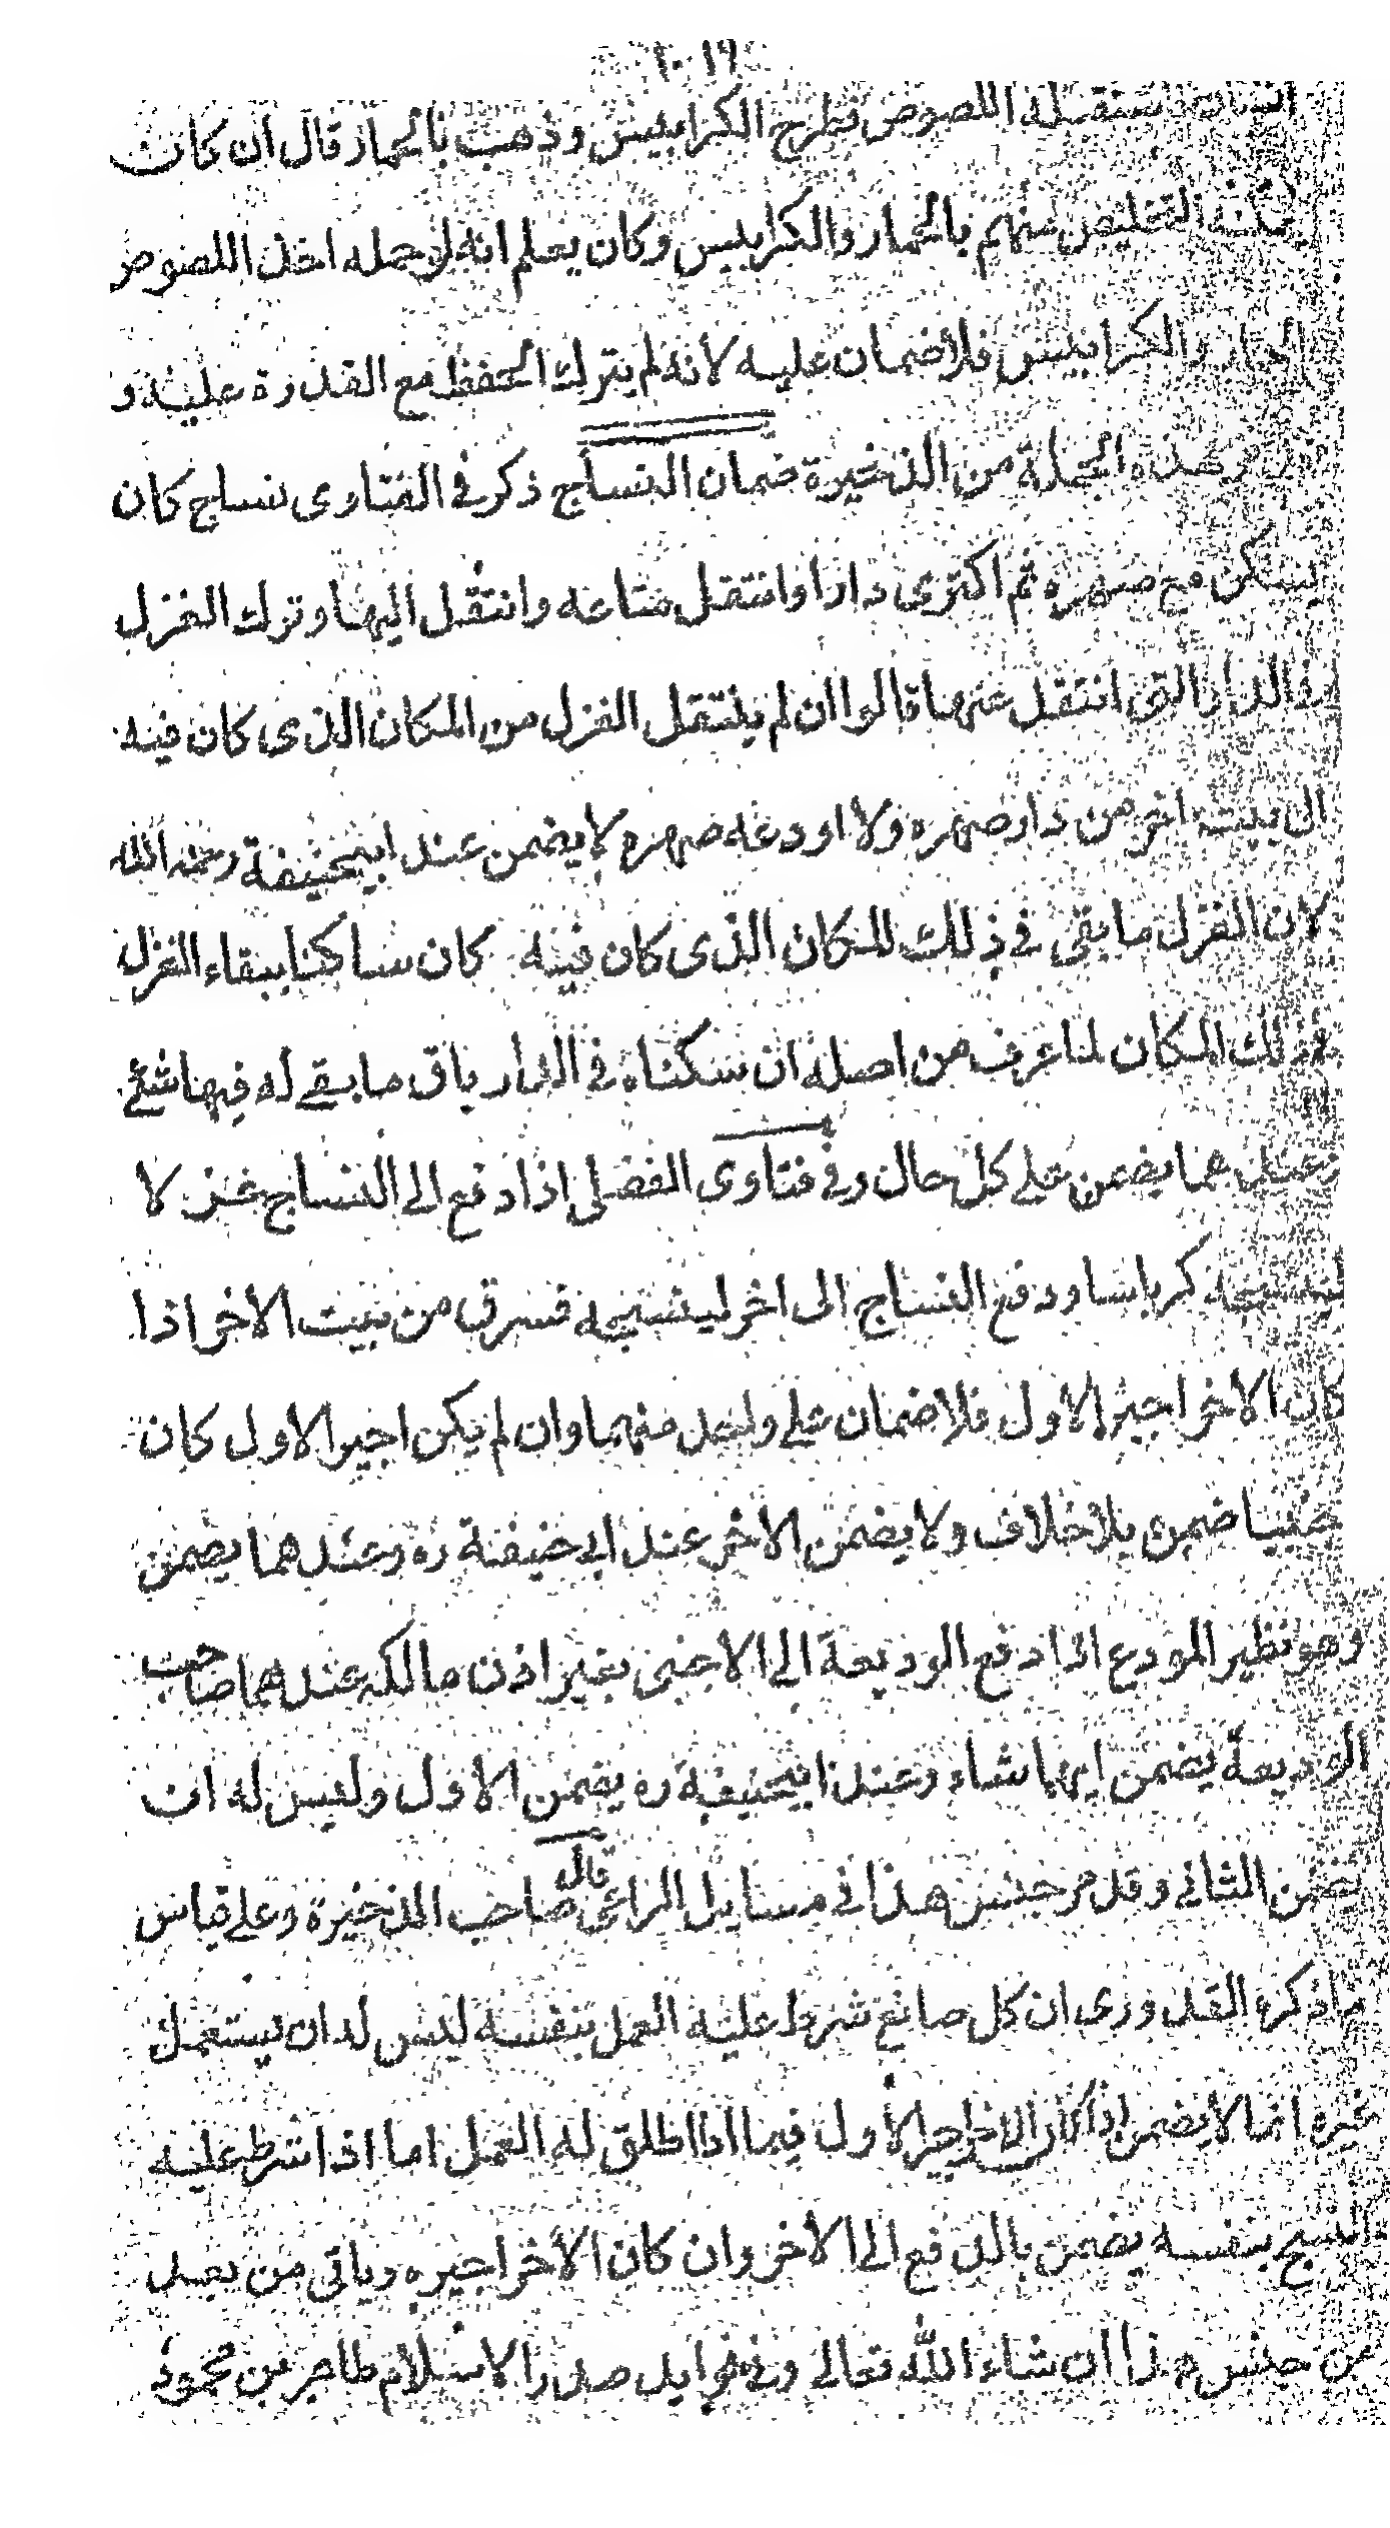 استقبله اللصوص فطرح الكرابيس وذهب بالحمار قال ان كان
يمكنه التخليص منهم بالحمار والكرابيس وكان يعلم انه لو حمله اخذ اللصوص
الحمار والكرابيس فلا ضمان عليه لانه لم يترك الحفظ مع القدرة عليه و
هذه الجملة من الذخيرة ضمان النساج ذكر في الفتاوى نساج كان
يسكن مع صهره ثم اكترى دارا وانتقل متاعه وانتقل اليها وترك الغزل
الدار التي انتقل عنها قالوا ان لم ينتقل الغزل من المكان الذي كان فيه
الى بيت اخر من دار صهره ولا اودعه صهره لا يضمن عند ابيحنيفة رحمه الله
لان الغزل ما بقى في ذلك المكان الذي كان فيه كان ساكنا ببقاء الغزل
ذلك المكان لما عرف من اصله ان سكناه في الدار باق ما بقي له فيها شئ
وعندهما يضمن على كل حال وفي فتاوى الفضلى اذا دفع الى النساج غزلا
لينسجه كرباسا ودفع النساج الى اخر لينسجه فسرق من بيت الاخر اذا
كان الاخر اجير الاول فلا ضمان على واحد منهما وان لم يكن اجير الاول كان
ضمن بلا خلاف ولا يضمن الاخر عند ابي حنيفة ره وعندهما يضمن
وهو نظير المودع اذا دفع الوديعة الى الاجنبى بغير اذن مالكه عندهما صاحب
الوديعة يضمن ايهما شاء وعند ابيحنيفة ره يضمن الاول وليس له ان
يضمن الثاني وقد مر جنس هذا في مسايل الراعى قال صاحب الذخيرة وعلى قياس
ما ذكره القدوري ان كل صانع شرط عليه العمل بنفسه ليس له ان يستعمل
غيره انما لا يضمن اذا كان الاخر اجير الاول فيما اذا اطلق له العمل اما اذا شرط عليه
النسج بنفسه يضمن بالدفع الى الاخر وان كان الاخر اجيره وياتي من بعد
من جنس هذا ان شاء الله تعالى وفي فوايد صدر الاسلام طاهر بن محمود